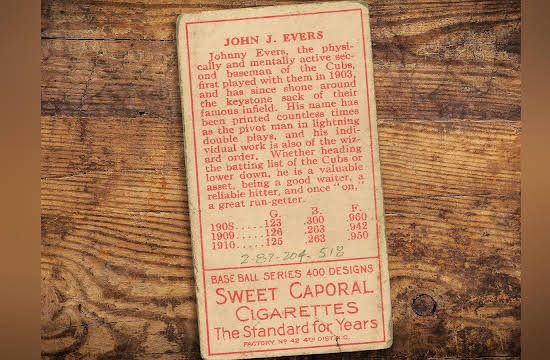 JOHN J. EVERS
Johnny Evers, the physi-
cally and mentally active sec-
ond baseman of the Cubs,
first played with them in 1903,
and has since shone around
the keystone sack of their
famous infield. His name has
been printed countless times
as the pivot man in lightning
double plays, and his indi-
vidual work is also of the wiz-
ard order. Whether heading
the batting list of the Cubs or
lower down, he is a valuable
asset, being a good waiter, a
reliable hitter, and once "on,"
a great run-getter.
G. B. F.
1908.....123 .300 .960
1909.....126 .263 .942
1910.....125 .263 .950
2-87-204- 518
BASE BALL SERIES 400 DESIGNS
SWEET CAPORAL
CIGARETTES
The Standard for Years
FACTORY No 42 4TH DIST. N.C.